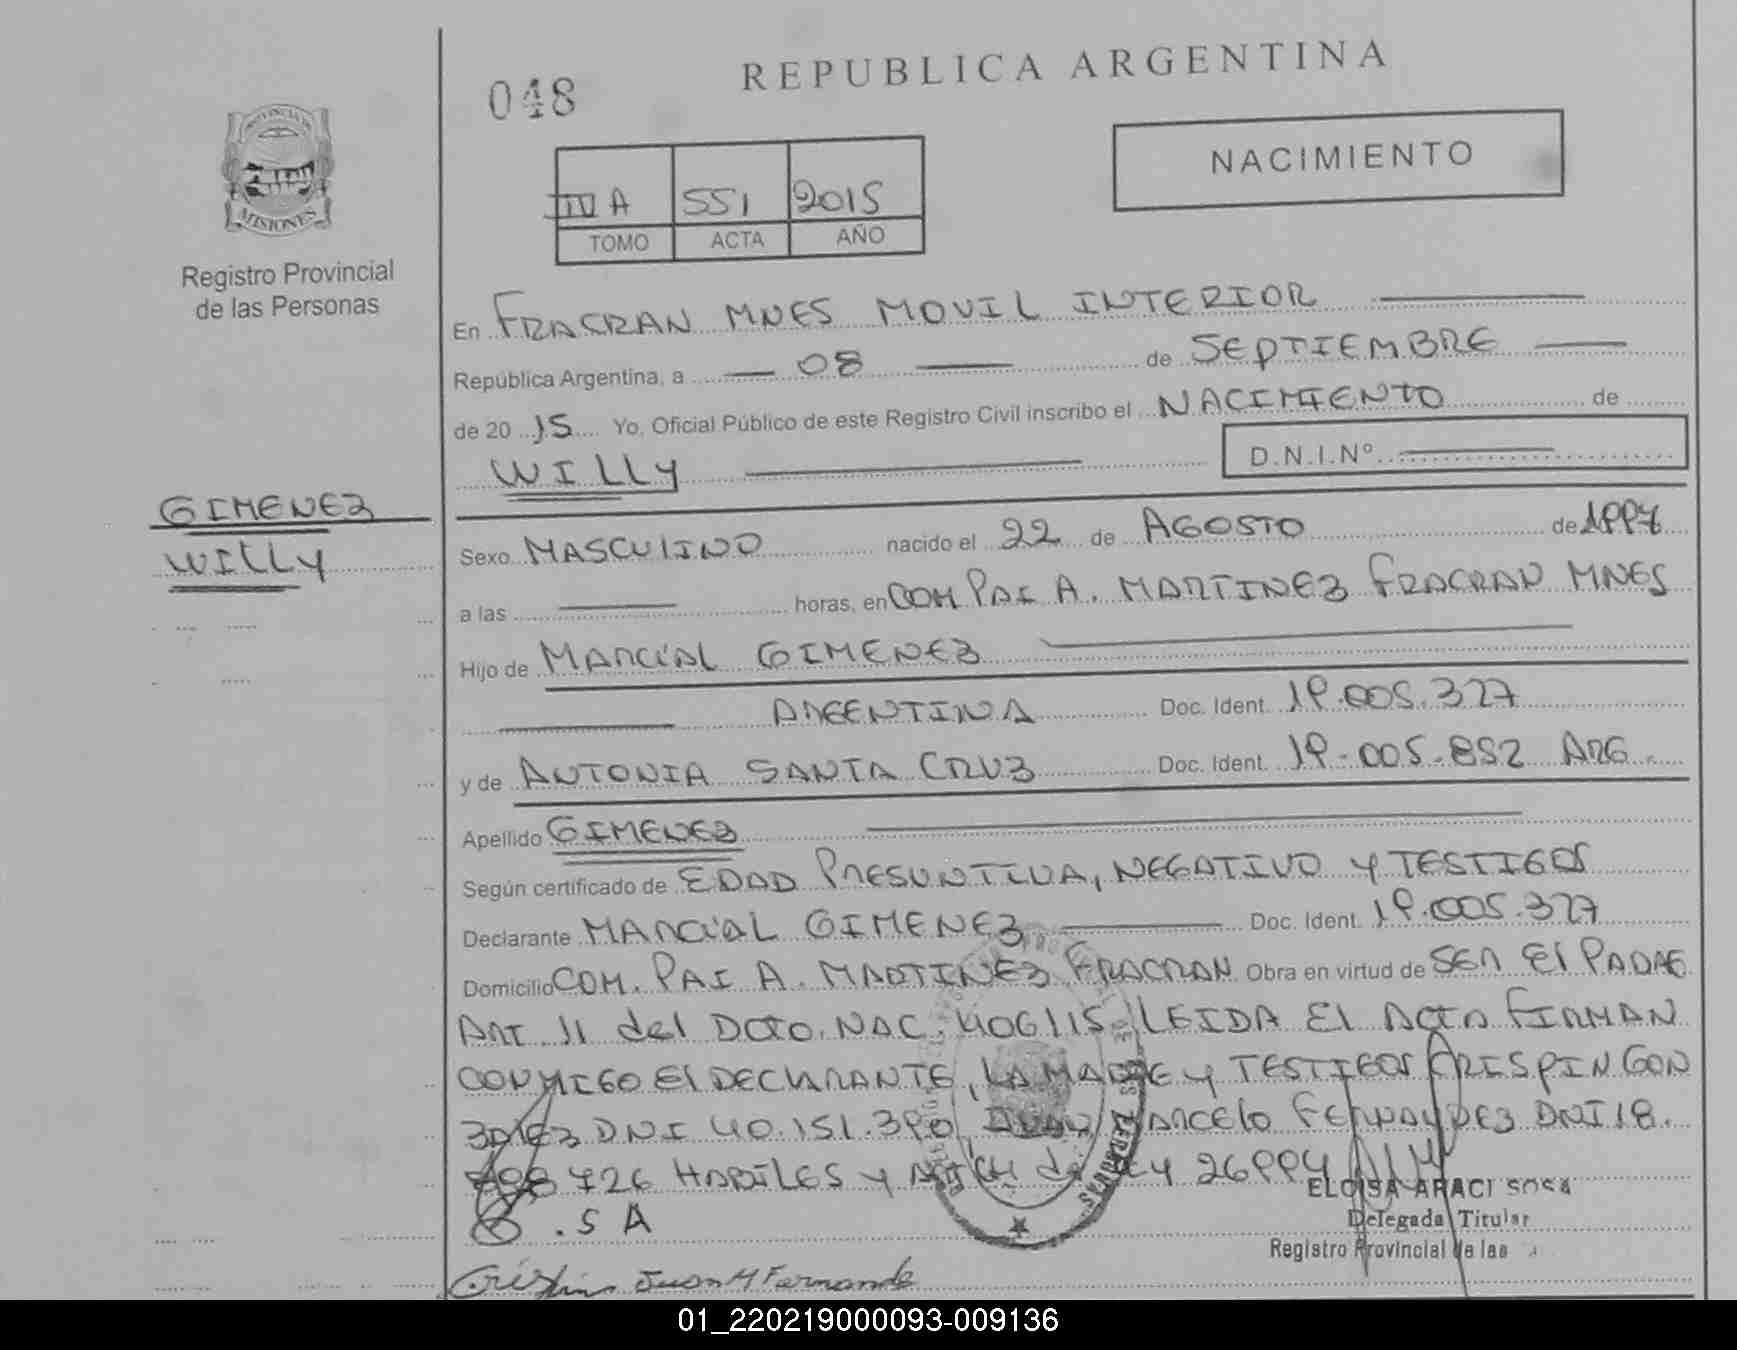 REPUBLICA ARGENTINA
048
NACIMIENTO
PROVINCIA DE
MISIONES
Registro Provincial
de las Personas
IV A 551 2015
TOMO ACTA AÑO
En FRACRAN MNES MOVIL INTERIOR
República Argentina, a 08 de SEPTIEMBRE
de 20 15 Yo, Oficial Público de este Registro Civil inscribo el NACIMIENTO de
WILLY
D.N.I.Nº
GIMENEZ
WILLY
Sexo MASCULINO nacido el 22 de AGOSTO de 1997
a las horas, en COM PAI A. MARTINEZ FRACRAN MNES
Hijo de MARCIAL GIMENEZ
ARGENTINA Doc. Ident. 19.005.327
y de ANTONIA SANTA CRUZ Doc. Ident. 19.005.852 ARG.
Apellido GIMENEZ
Según certificado de EDAD PRESUNTIVA, NEGATIVO Y TESTIGOS
Declarante MARCIAL GIMENEZ Doc. Ident. 19.005.327
Domicilio COM. PAI A. MARTINEZ FRACRAN Obra en virtud de SER El PADRE
ART 11 del DCTO. NAC. 406115 LEIDA El ACTA FIRMAN
CONMIGO El DECLARANTE, LA MADRE Y TESTIGOS CRISPIN GON
ZALEZ DNI 40.151.390 JUAN MARCELO FERNANDEZ DNI 18.
726 HABILES Y de LEY 26994
.S A
ELOISA ARACI SOSA
Delegada Titular
Registro Provincial de las
Crispin Juan M Fernande
01_220219000093-009136